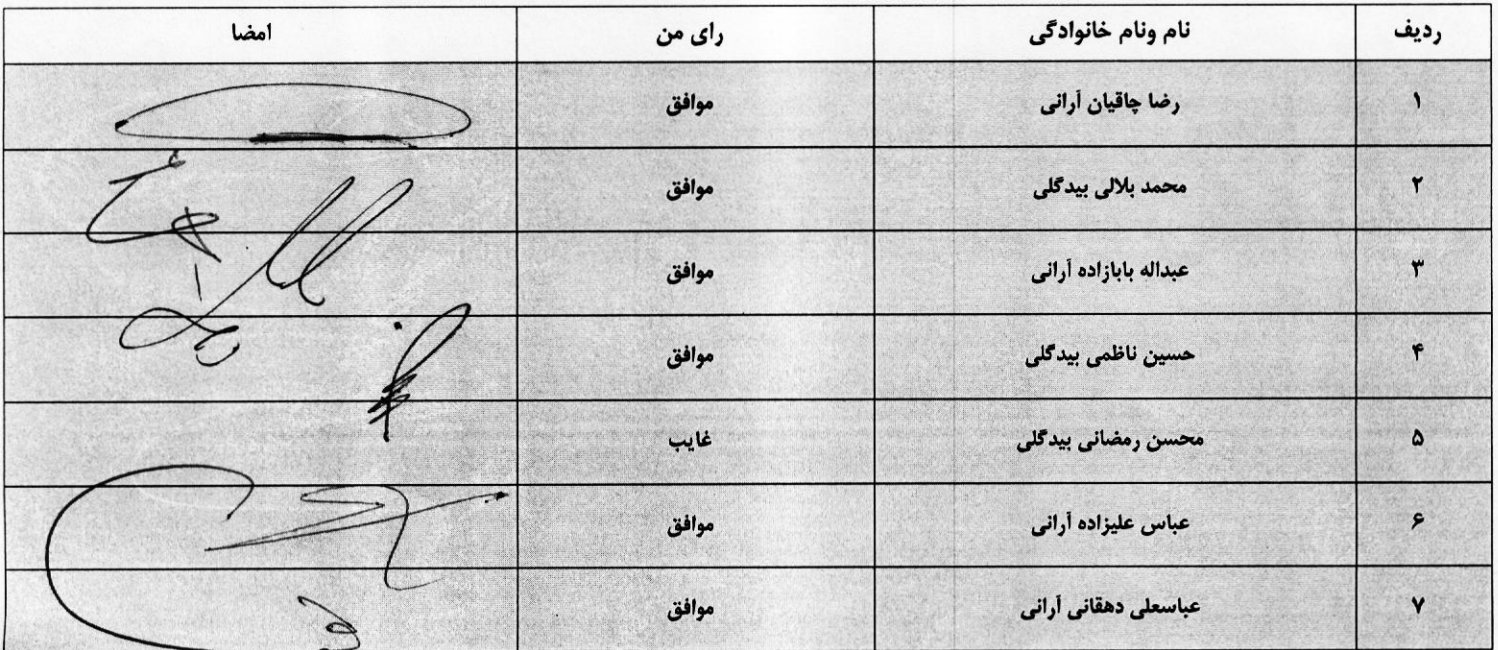 ردیف نام ونام خانوادگی رای من امضا
۱ رضا چاقیان آرانی موافق
۲ محمد بلالی بیدگلی موافق
۳ عبداله بابازاده آرانی موافق
۴ حسین ناظمی بیدگلی موافق
۵ محسن رمضانی بیدگلی غایب
۶ عباس علیزاده آرانی موافق
۷ عباسعلی دهقانی آرانی موافق